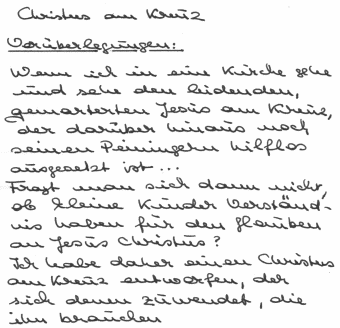 Christus am Kreuz
Vorüberlegungen:
Wenn ich in eine Kirche gehe
und sehe den leidenden,
gemarterten Jesus am Kreuz,
der darüber hinaus noch
seinen Peinigern hilflos
ausgesetzt ist...
Fragt man sich dann nicht,
ob kleine Kinder Verständ-
nis haben für den Glauben
an Jesus Christus?
Ich habe daher einen Christus
am Kreuz entworfen, der
sich denen zuwendet, die
ihn brauchen